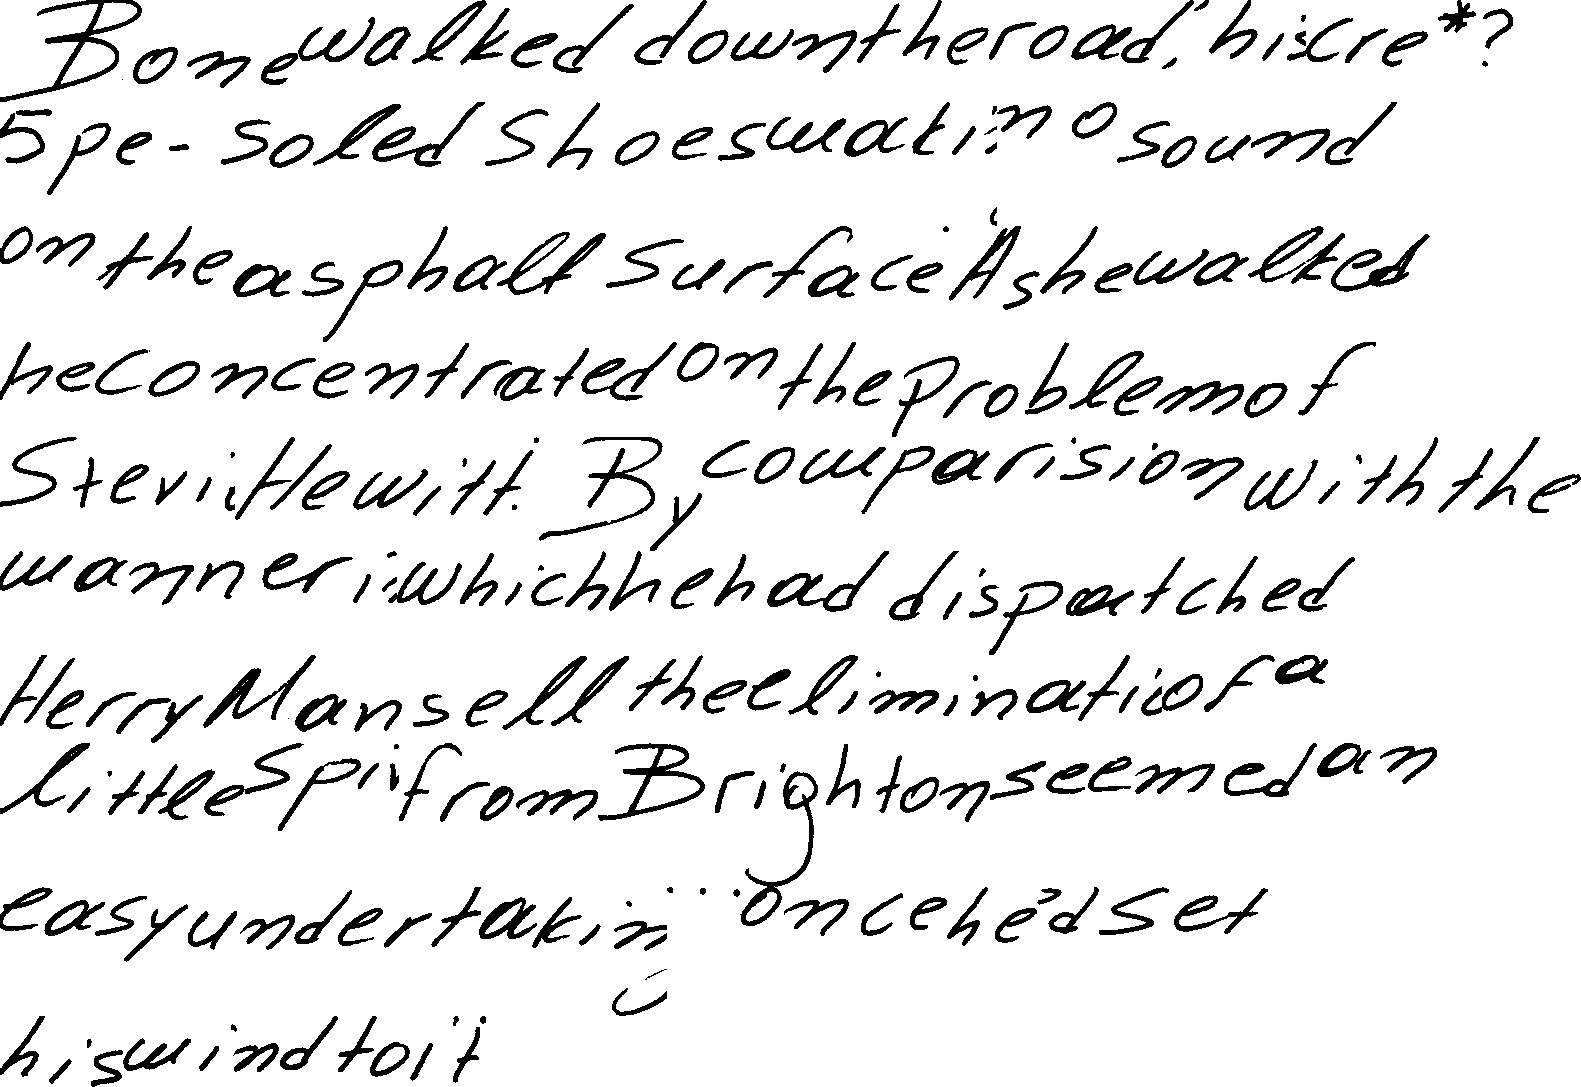 Bone walked down the road, his cre*?
5pe-soled shoes making no sound
on the asphalt surface. As he walked
he concentrated on the problem of
Stevie Hewitt. By comparision with the
manner in which he had dispatched
Herry Mansell the elimination of a
little spiv from Brighton seemed an
easy undertaking... once he'd set
his mind to it